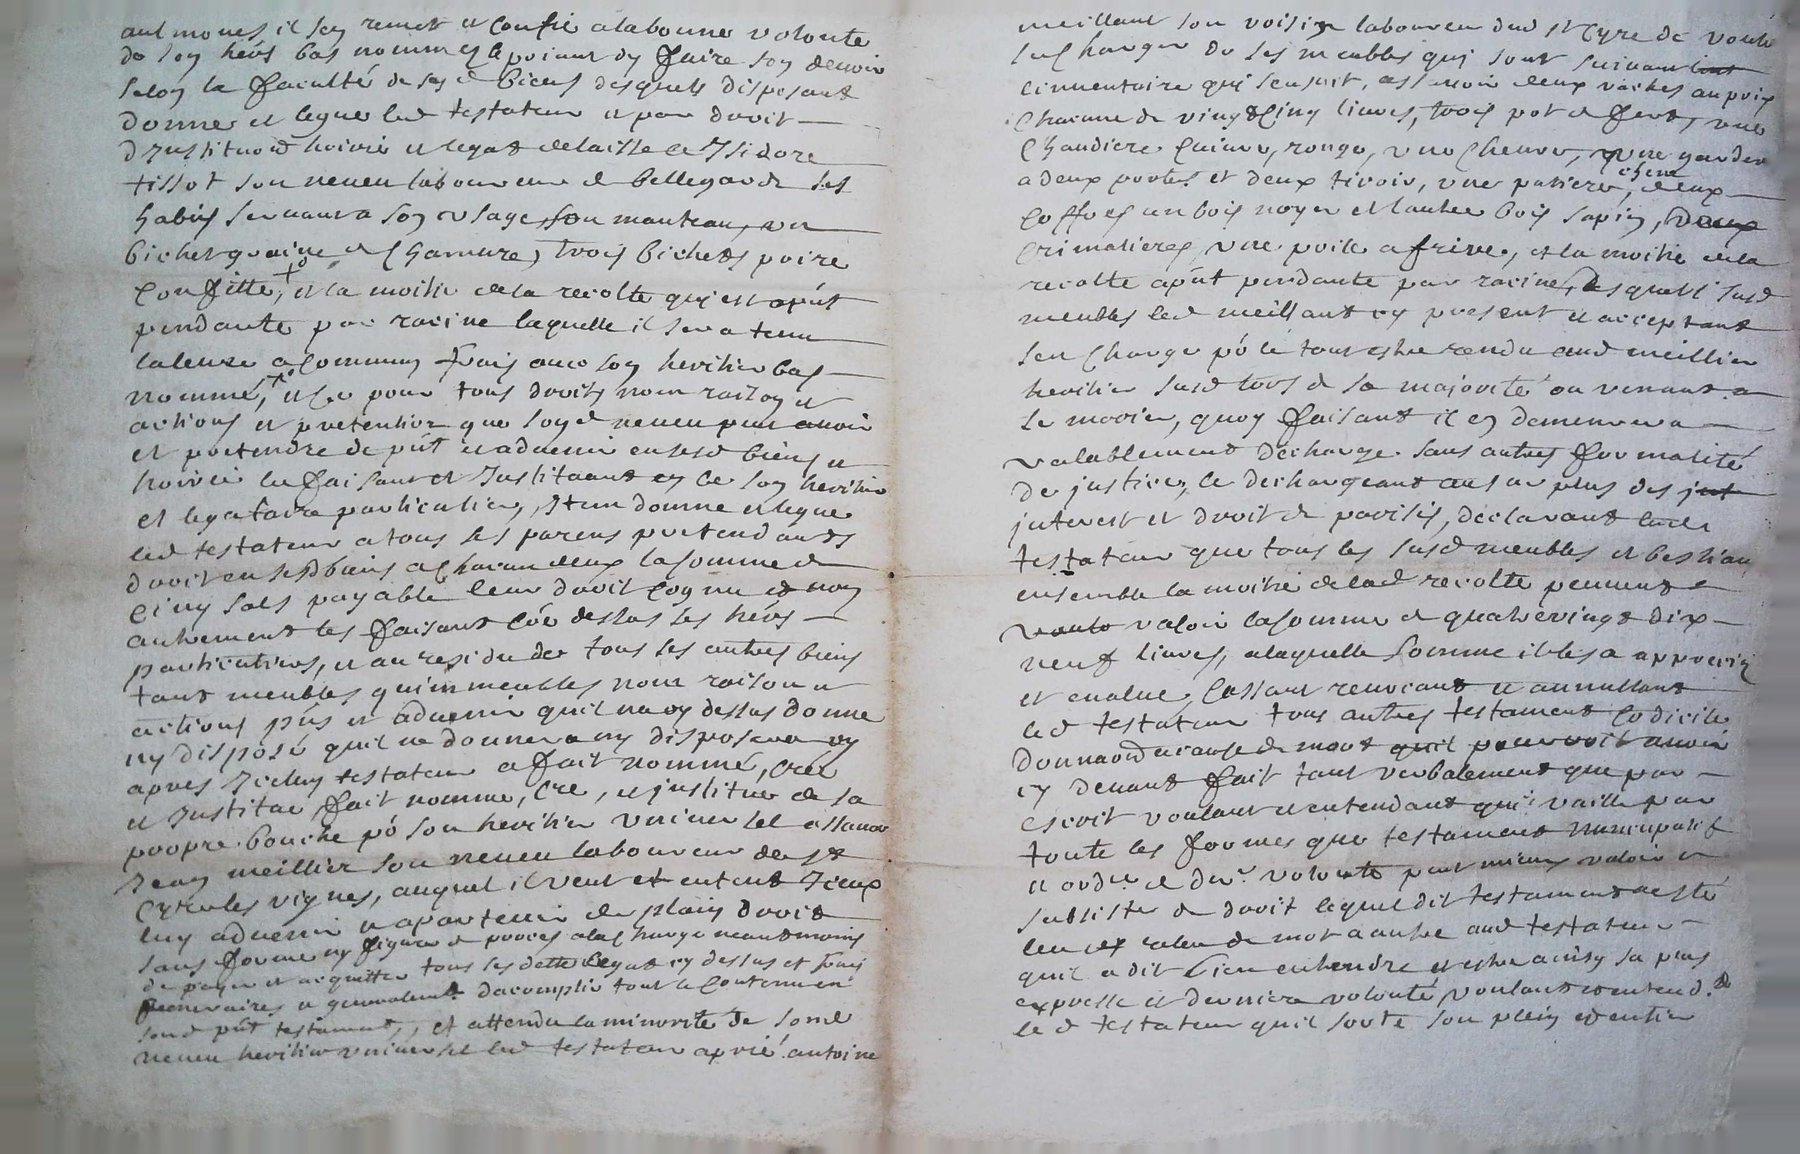 aulmones il sen remet et confie a la bonne volonté
de son herˢ bas nommé le priant dy faire son devoir
selon la faculté de sesd biens desquels disposant
donne et legue led testateur et par droit
dInstituõn hoirie et legat delaisse a Isidore
tissot son neveu laboureur de bellegarde ses
habits servant a son usage, son manteau, un
bichet graine de Chanvre, trois bichets poire
Confitte, et la moitie de la recolte qui est apñt
pendante par racine laquelle il sera tenu
la leuve a communs frais avec son heritier bas
nommé, et ce pour tous droits nom raison et
actions et pretention que sond neveu peut avoir
et pretendre de pñt et advenir en sesd biens et
hoirie le faisant et Instituant en ce son heritier
et legataire particulier, Item donne et legue
led testateur a tous ses parens pretendants
droit en sesd biens a chacun deux la somme de
Cinq sols payable leur droit connu et non
autrement les faisant cõe dessus ses herˢ
particuliers, et au residu de tous ses autres biens
tant meubles quimmeubles nom raison et
actions pñs et advenir quil na cy dessus donne
ny disposé quil ne donnera ny disposera cy
apres Iceluy testateur a fait nommé, créé
et Institué fait nomme, cre, et institue de sa
propre bouche pô son heritier universel assavoir
Jean meillier son neveu laboureur de St
Cyre les vignes, auquel il veut et entent Iceux
luy advenir et apartenir de plain droit
sans forme ny figure de proces a la charge neantmoins
de payer et acquitter tous ses dettes legats cy dessus et frais
funeraires et generalemt dacomplir tout le contenu en
sond pñt testament, et attendu la minorité de sond
neveu heritier universel led testateur a prié antoine
meillant son voisin laboureur dud St Cyre de vouloir
se charger de ses meubles qui sont suivant
linventaire qui sensuit, assavoir deux vaches au prix
chacune de vingt cinq livres, trois pot de fert, une
Chaudiere cuivre, rouge, une chevre, une garderobe
a deux portes et deux tiroir, une patiere chene, deux
coffres un bois noyer et lautre bois sapin, deux
crimalieres, une poile a frire, et la moitie de la
recolte apñt pendante par racine, desquels susd
meubles led meillant cy present et acceptant
sen charge pô le tout estre rendu aud meillier
heritier susd lors de sa majorité ou venant a
se marier, quoy faisant il en demeurera
valablement decharge sans autres formalité
de justice, le dechargeant au surplus des
interest et droit de parisis, declarant led
testateur que tous les susd meubles et bestiaux
ensemble la moitie de lad recolte peuvent
valoir la somme de quatrevingt dix
neuf livres, a laquelle somme il les a apprecié
et evalué, Cassant revocant et annullant
led testateur tous autres testament codicile
donnaõn a cause de mort quil pourroit avoir
cy devant fait tant verbalement que par
escrit voulant et entendant quil vaille par
toute les formes que testament nuncupatif
et ordre de derʳ volonté peut mieux valoir et
subsister de droit lequel dit testament a esté
leu et relu de mot a autre aud testateur
quil a dit bien entendre et estre ainsy sa plus
expresse et derniere volonté voulant et entend.
led testateur quil sorte son plein et entier